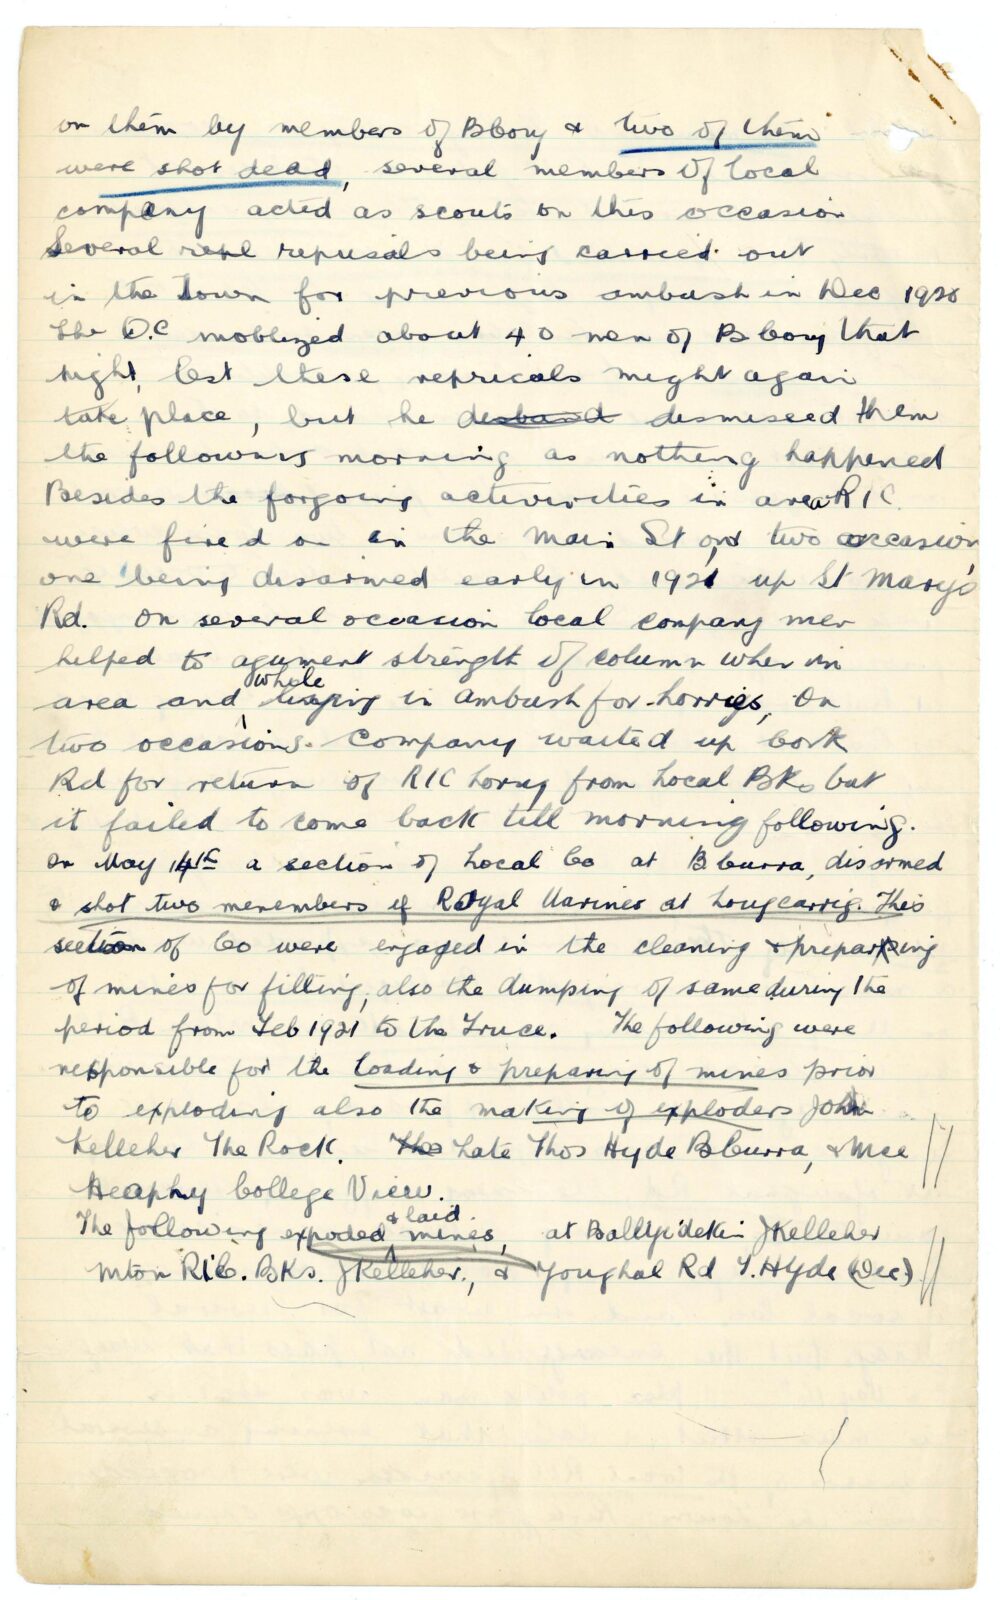 on them by members of B Coy & two of them
were shot dead, several members of local
company acted as scouts on this occasion
Several repl repusals being carried out
in the Town for previous ambush in Dec 1920
The O.C moblized about 40 men of B Coy that
night, lest these repricals might again
take place, but he disband dismissed them
the following morning as nothing happened
Besides the forgoing activivities in area RIC
were fired on in the Main St on two occasion
one being disarmed early in 1921 up St Mary's
Rd. On several occasion local company men
helped to agument strength of column when in
area and while lieing in ambush for lorries, on
two occasions. Company waited up Cork
Rd for return of RIC lorry from Local Bks but
it failed to come back till morning following.
On May 14th a section of Local Co at B Curra, disarmed
& shot two menembers of Royal Marines at Lougcarrig. This
section of Co were engaged in the cleaning & preparing
of mines for filling, also the dumping of same during the
period from Feb 1921 to the Truce. The following were
responsible for the loading & preparing of mines prior
to exploding also the making of exploders John
Kelleher The Rock. The Late Thos Hyde B Curra, & Mce
Heaphy College View.
The following expoded & laid mines, at Ballyidekin J Kelleher
Mton RIC. Bks. J Kelleher., & Youghal Rd T. Hyde (Dec)